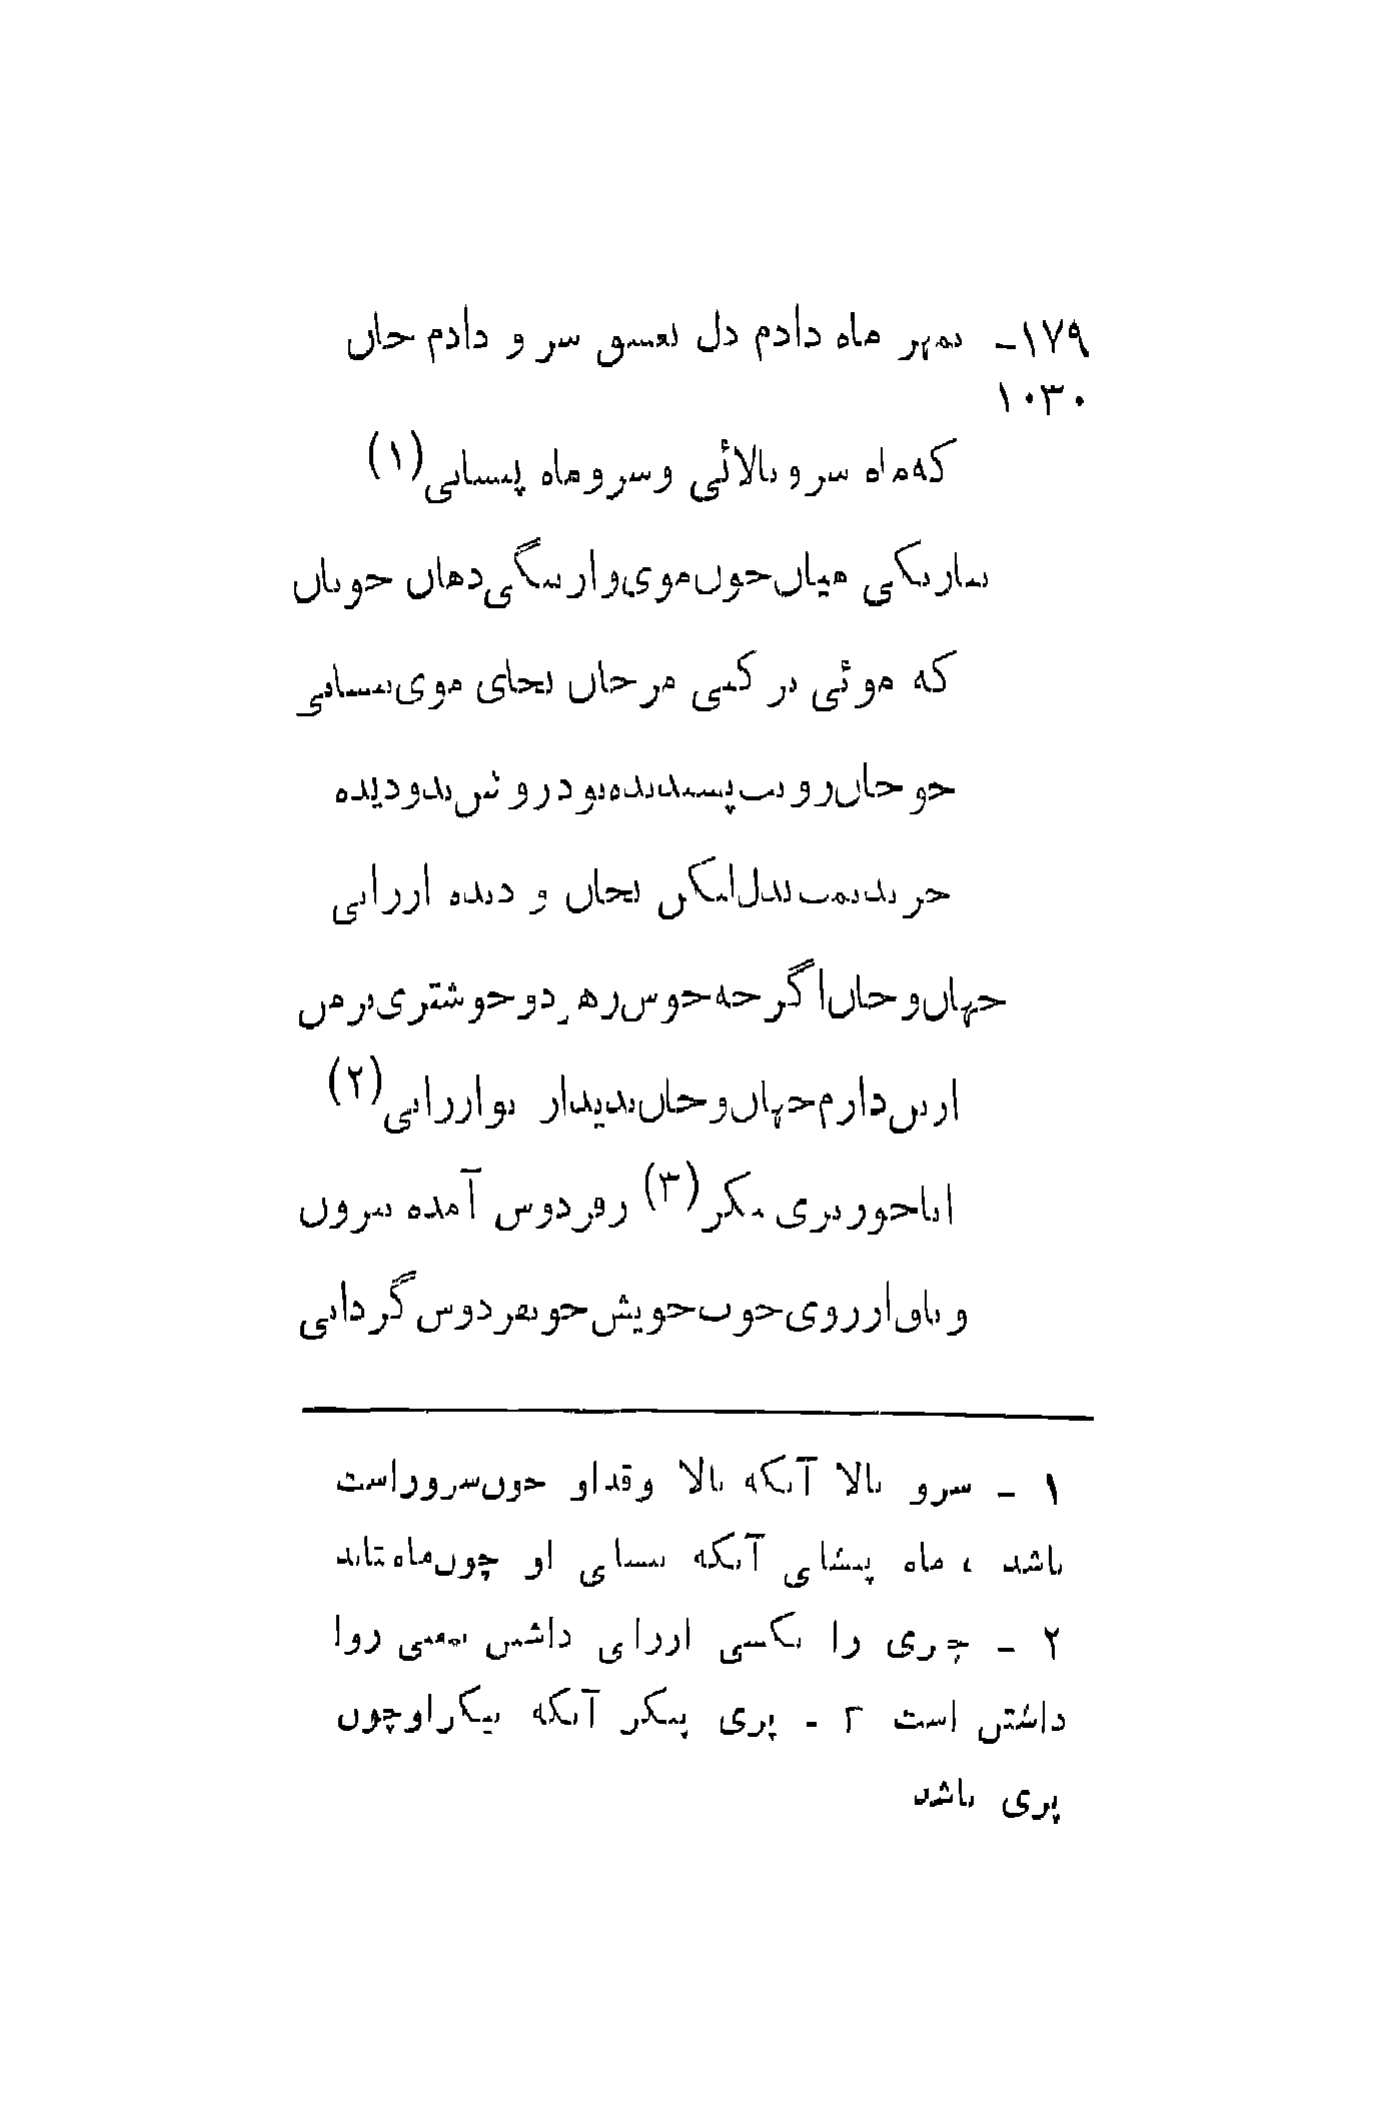 ۱۷۹- بمهر ماه دادم دل بعشق سر و دادم جان
۱۰۳۰
که ماه سر و بالائی و سرو ماه پیشانی (۱)
بباریکی میان چون موی و از تنگی دهان چونان
که موئی بر کنی مرجان بجای موی بنشانی
چو جان رویت پسندیده بود روشن بدو دیده
خریدیمت بدل لیکن بجان و دیده ارزانی
جهان و جان اگر چه خوش ز هر دو خوشتری بر من
ازین دارم جهان و جان بدیدار تو ارزانی (۲)
ایا حور پری پیکر (۳) ز فردوس آمده بیرون
وثاق از روی خوب خویش چو بفردوس گردانی
۱ - سرو بالا آنکه بالا و قد او چون سرو راست
باشد ، ماه پیشانی آنکه پیشانی او چون ماه تابد
۲ - چیزی را بکسی ارزانی داشتن بمعنی روا
داشتن است ۳ - پری پیکر آنکه پیکر او چون
پری باشد